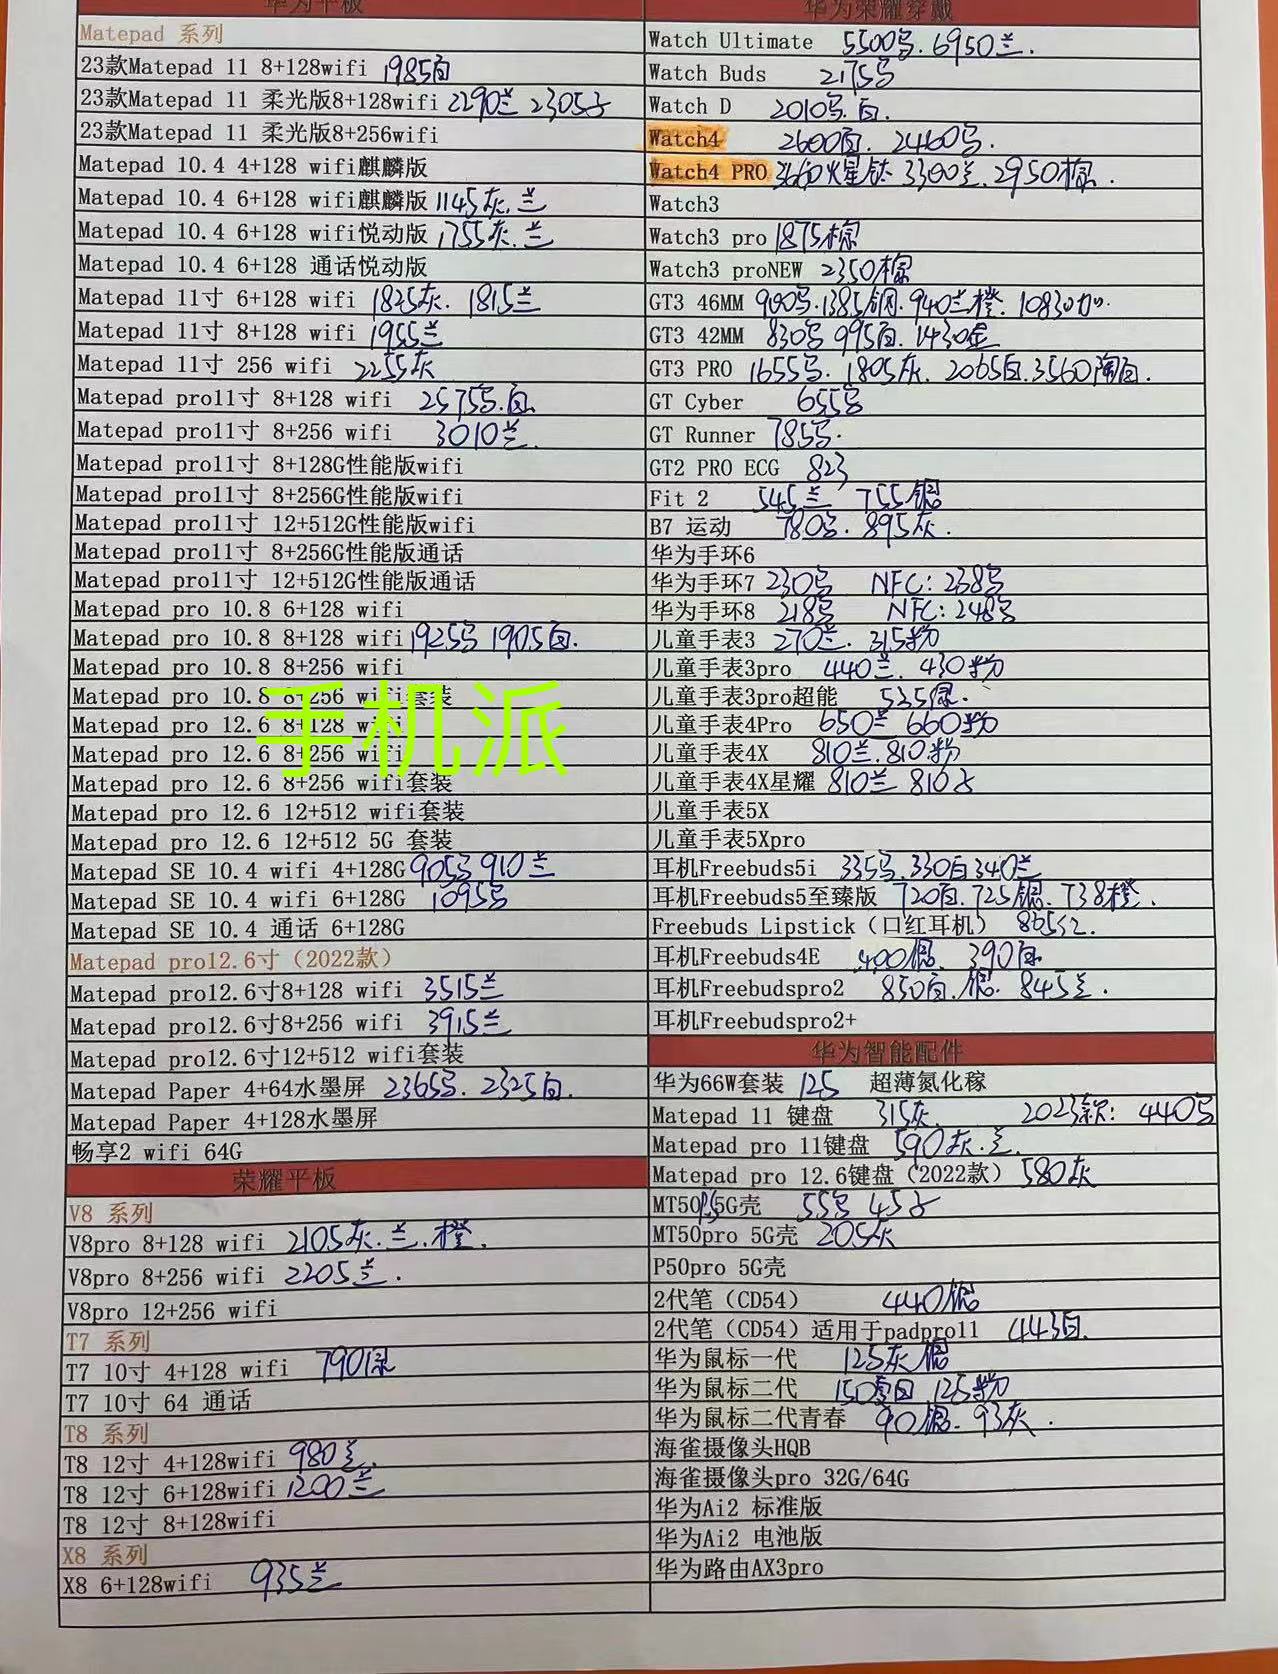 华为平板
Matepad 系列
23款Matepad 11 8+128wifi 1985白
23款Matepad 11 柔光版8+128wifi 2290兰 2305子
23款Matepad 11 柔光版8+256wifi
Matepad 10.4 4+128 wifi麒麟版
Matepad 10.4 6+128 wifi麒麟版 1145灰.兰
Matepad 10.4 6+128 wifi悦动版 1755灰.兰
Matepad 10.4 6+128 通话悦动版
Matepad 11寸 6+128 wifi 1825灰. 1815兰
Matepad 11寸 8+128 wifi 1955兰
Matepad 11寸 256 wifi 2255灰
Matepad pro11寸 8+128 wifi 2575号.白
Matepad pro11寸 8+256 wifi 3010兰.
Matepad pro11寸 8+128G性能版wifi
Matepad pro11寸 8+256G性能版wifi
Matepad pro11寸 12+512G性能版wifi
Matepad pro11寸 8+256G性能版通话
Matepad pro11寸 12+512G性能版通话
Matepad pro 10.8 6+128 wifi
Matepad pro 10.8 8+128 wifi 1925号 1905白.
Matepad pro 10.8 8+256 wifi
Matepad pro 10.8 8+256 wifi套装
手机派
Matepad pro 12.6 8+128 wifi
Matepad pro 12.6 8+256 wifi
Matepad pro 12.6 8+256 wifi套装
Matepad pro 12.6 12+512 wifi套装
Matepad pro 12.6 12+512 5G 套装
Matepad SE 10.4 wifi 4+128G 905号 910兰
Matepad SE 10.4 wifi 6+128G 1095号
Matepad SE 10.4 通话 6+128G
Matepad pro12.6寸（2022款）
Matepad pro12.6寸8+128 wifi 3515兰
Matepad pro12.6寸8+256 wifi 3915兰
Matepad pro12.6寸12+512 wifi套装
Matepad Paper 4+64水墨屏 2365号. 2325白.
Matepad Paper 4+128水墨屏
畅享2 wifi 64G
荣耀平板
V8 系列
V8pro 8+128 wifi 2105灰.兰.橙.
V8pro 8+256 wifi 2205兰.
V8pro 12+256 wifi
T7 系列
T7 10寸 4+128 wifi 790绿
T7 10寸 64 通话
T8 系列
T8 12寸 4+128wifi 980兰.
T8 12寸 6+128wifi 1200兰
T8 12寸 8+128wifi
X8 系列
X8 6+128wifi 935兰
华为荣耀穿戴
Watch Ultimate 5500号. 6950兰.
Watch Buds 2175号
Watch D 2010号.白.
Watch4 2600白. 2460号.
Watch4 PRO 3660火星钛 3300兰. 2950棕.
Watch3
Watch3 pro 1875棕
Watch3 proNEW 2350棕
GT3 46MM 900号.1385钢.940兰橙. 1083加.
GT3 42MM 830号 995白. 1430金
GT3 PRO 1655号. 1805灰. 2065白.3560陶白.
GT Cyber 655号
GT Runner 785号.
GT2 PRO ECG 823
Fit 2 545兰 755银
B7 运动 780号. 895灰.
华为手环6
华为手环7 230号 NFC:238号
华为手环8 218号 NFC:248号
儿童手表3 270兰. 315粉
儿童手表3pro 440兰. 430粉
儿童手表3pro超能 535绿.
儿童手表4Pro 650兰 660粉
儿童手表4X 810兰.810粉
儿童手表4X星耀 810兰 810子
儿童手表5X
儿童手表5Xpro
耳机Freebuds5i 335号.330白340兰
耳机Freebuds5至臻版 720白.725银.738橙.
Freebuds Lipstick（口红耳机） 865红.
耳机Freebuds4E 400银. 390白
耳机Freebudspro2 850白.银. 845兰.
耳机Freebudspro2+
华为智能配件
华为66W套装 125 超薄氮化稼
Matepad 11 键盘 315灰 2023款: 440号
Matepad pro 11键盘 590灰.兰.
Matepad pro 12.6键盘（2022款） 580灰
MT50 5G壳 55号 45子
MT50pro 5G壳 205灰
P50pro 5G壳
2代笔（CD54） 440银
2代笔（CD54）适用于padpro11 443白.
华为鼠标一代 125灰 银
华为鼠标二代 150雪白 125粉
华为鼠标二代青春 90银. 93灰.
海雀摄像头HQB
海雀摄像头pro 32G/64G
华为Ai2 标准版
华为Ai2 电池版
华为路由AX3pro